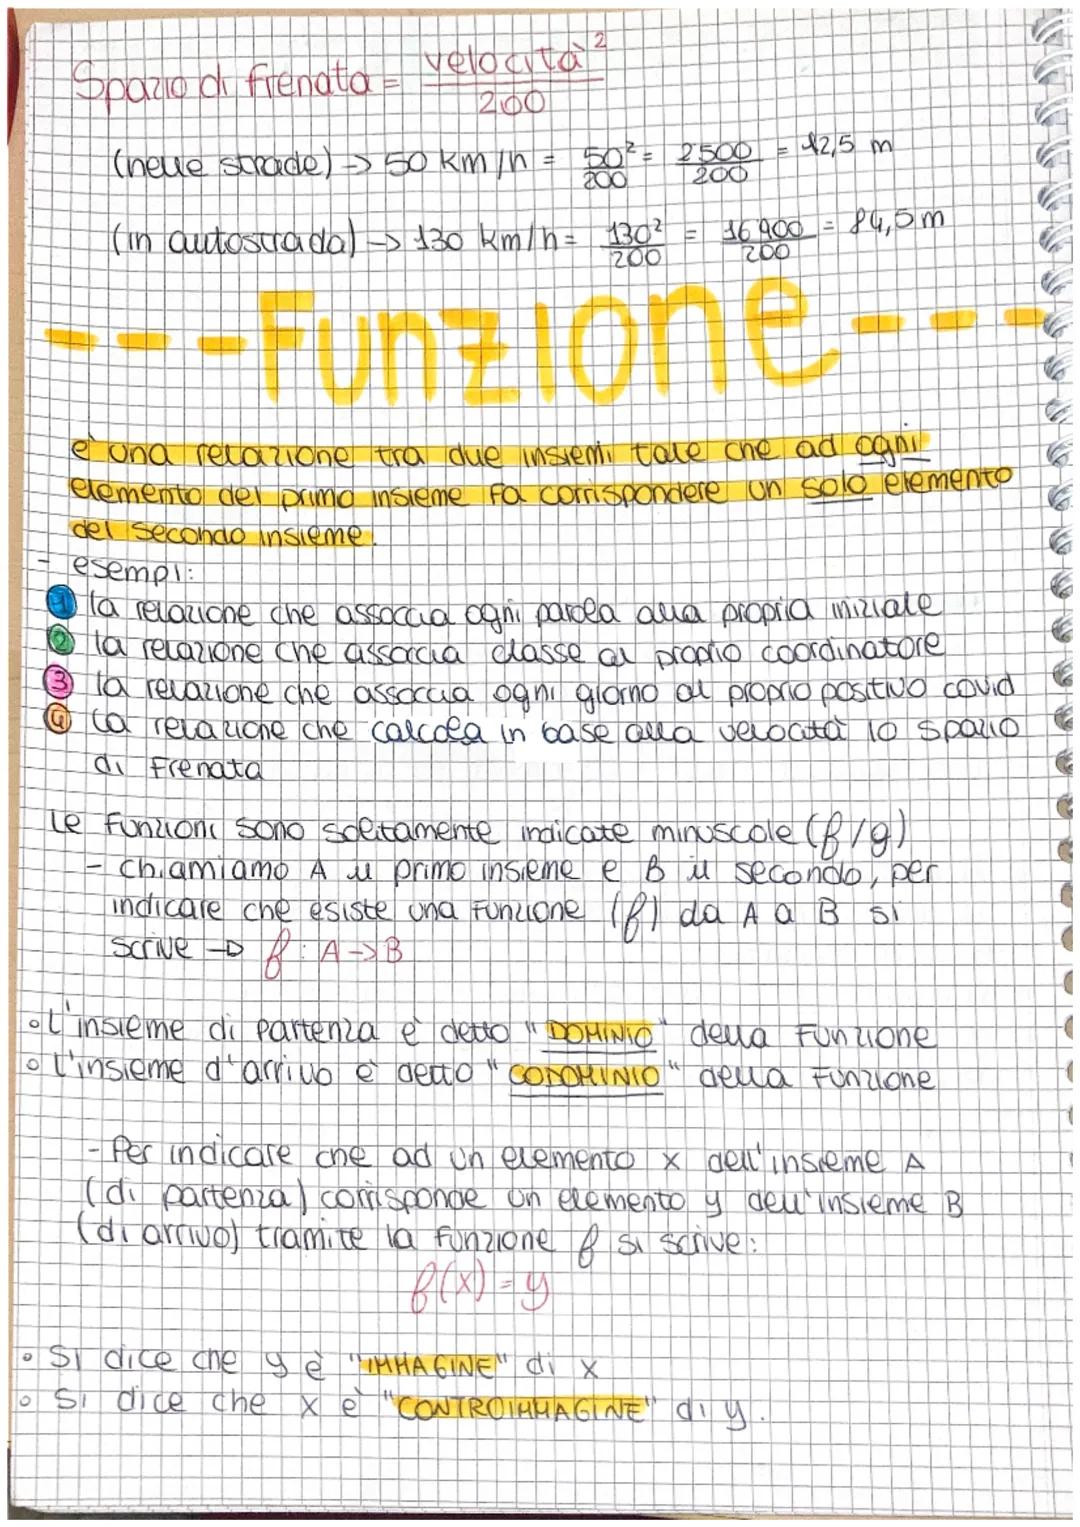 Spazio di frenata = velocità² / 200
(nelle strade) -> 50 km/h = 50²/200 = 2500/200 = 12,5 m
(in autostrada) -> 130 km/h = 130²/200 = 16900/200 = 84,5 m
---Funzione---
è una relazione tra due insiemi tale che ad ogni
elemento del primo insieme fa corrispondere un solo elemento
del secondo insieme.
- esempi:
1 la relazione che associa ogni parola alla propria iniziale
2 la relazione che associa classe al proprio coordinatore
3 la relazione che associa ogni giorno al proprio positivo covid
4 la relazione che calcola in base alla velocità lo spazio
di frenata
Le funzioni sono solitamente indicate minuscole (f/g)
- chiamiamo A il primo insieme e B il secondo, per
indicare che esiste una funzione (f) da A a B si
scrive -> f: A->B
• L'insieme di partenza è detto "DOMINIO" della funzione
• L'insieme d'arrivo è detto "CODOMINIO" della funzione
- Per indicare che ad un elemento x dell'insieme A
(di partenza) corrisponde un elemento y dell'insieme B
(di arrivo) tramite la funzione f si scrive:
f(x) = y
• Si dice che y è "IMMAGINE" di x
• Si dice che x è "CONTROIMMAGINE" di y.